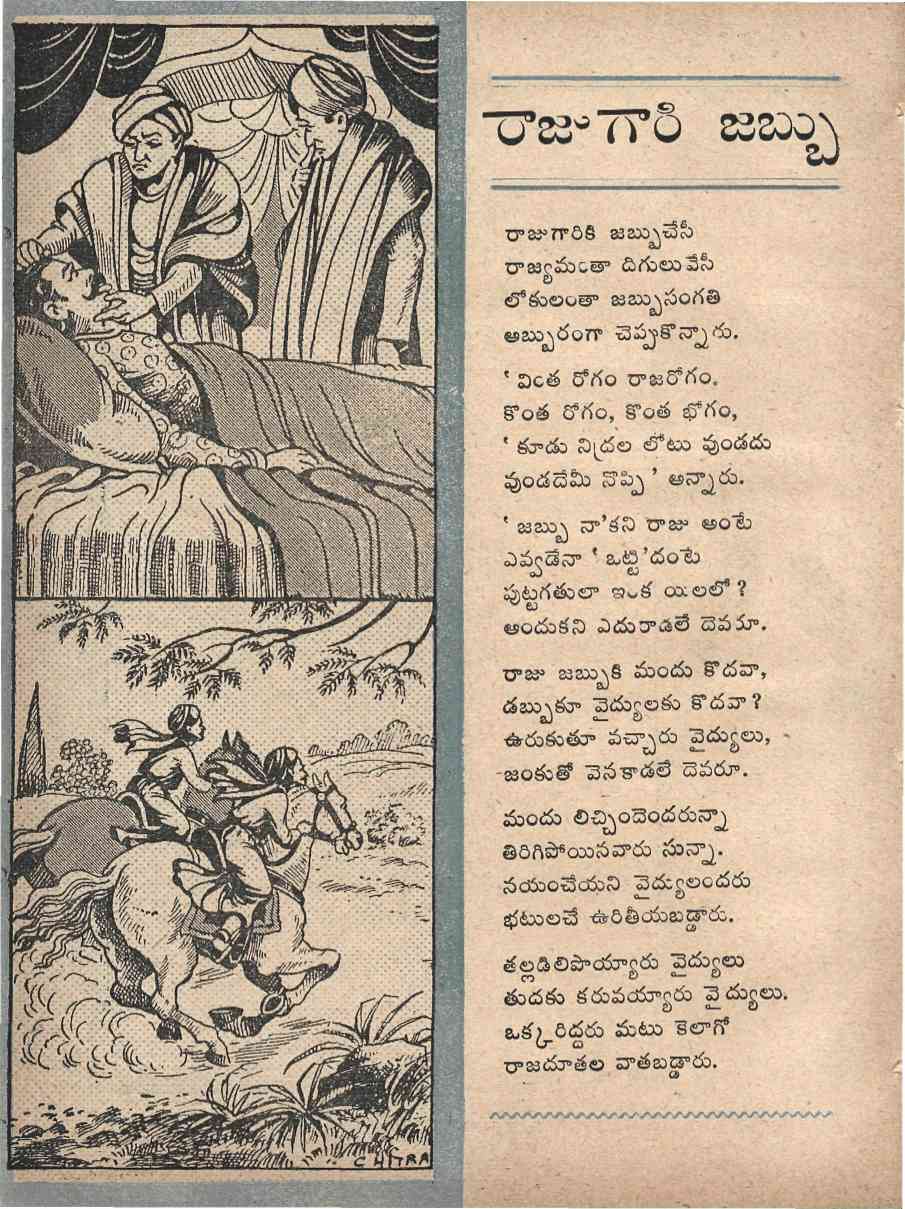 రాజుగారి జబ్బు
రాజుగారికి జబ్బుచేసీ
రాజ్యమంతా దిగులువేసీ
లోకులంతా జబ్బుసంగతి
అబ్బురంగా చెప్పుకొన్నారు.
‘వింత రోగం రాజరోగం.
కొంత రోగం, కొంత భోగం,
‘కూడు నిద్రల లోటు వుండదు
వుండదేమీ నొప్పి’ అన్నారు.
‘జబ్బు నా’కని రాజు అంటే
ఎవ్వడేనా ‘ఒట్టి’దంటె
పుట్టగతులా ఇంక యిలలో?
అందుకని ఎదురాడలే దెవరూ.
రాజు జబ్బుకి మందు కొదవా,
డబ్బుకూ వైద్యులకు కొదవా?
ఉరుకుతూ వచ్చారు వైద్యులు,
జంకుతో వెనకాడలే దెవరూ.
మందు లిచ్చిందెందరున్నా
తిరిగిపోయినవారు సున్నా.
నయంచేయని వైద్యులందరు
భటులచే ఉరితీయబడ్డారు.
తల్లడిలిపొయ్యారు వైద్యులు
తుదకు కరువయ్యారు వైద్యులు.
ఒక్కరిద్దరు మటు కెలాగో
రాజదూతల వాతబడ్డారు.
CHITRA